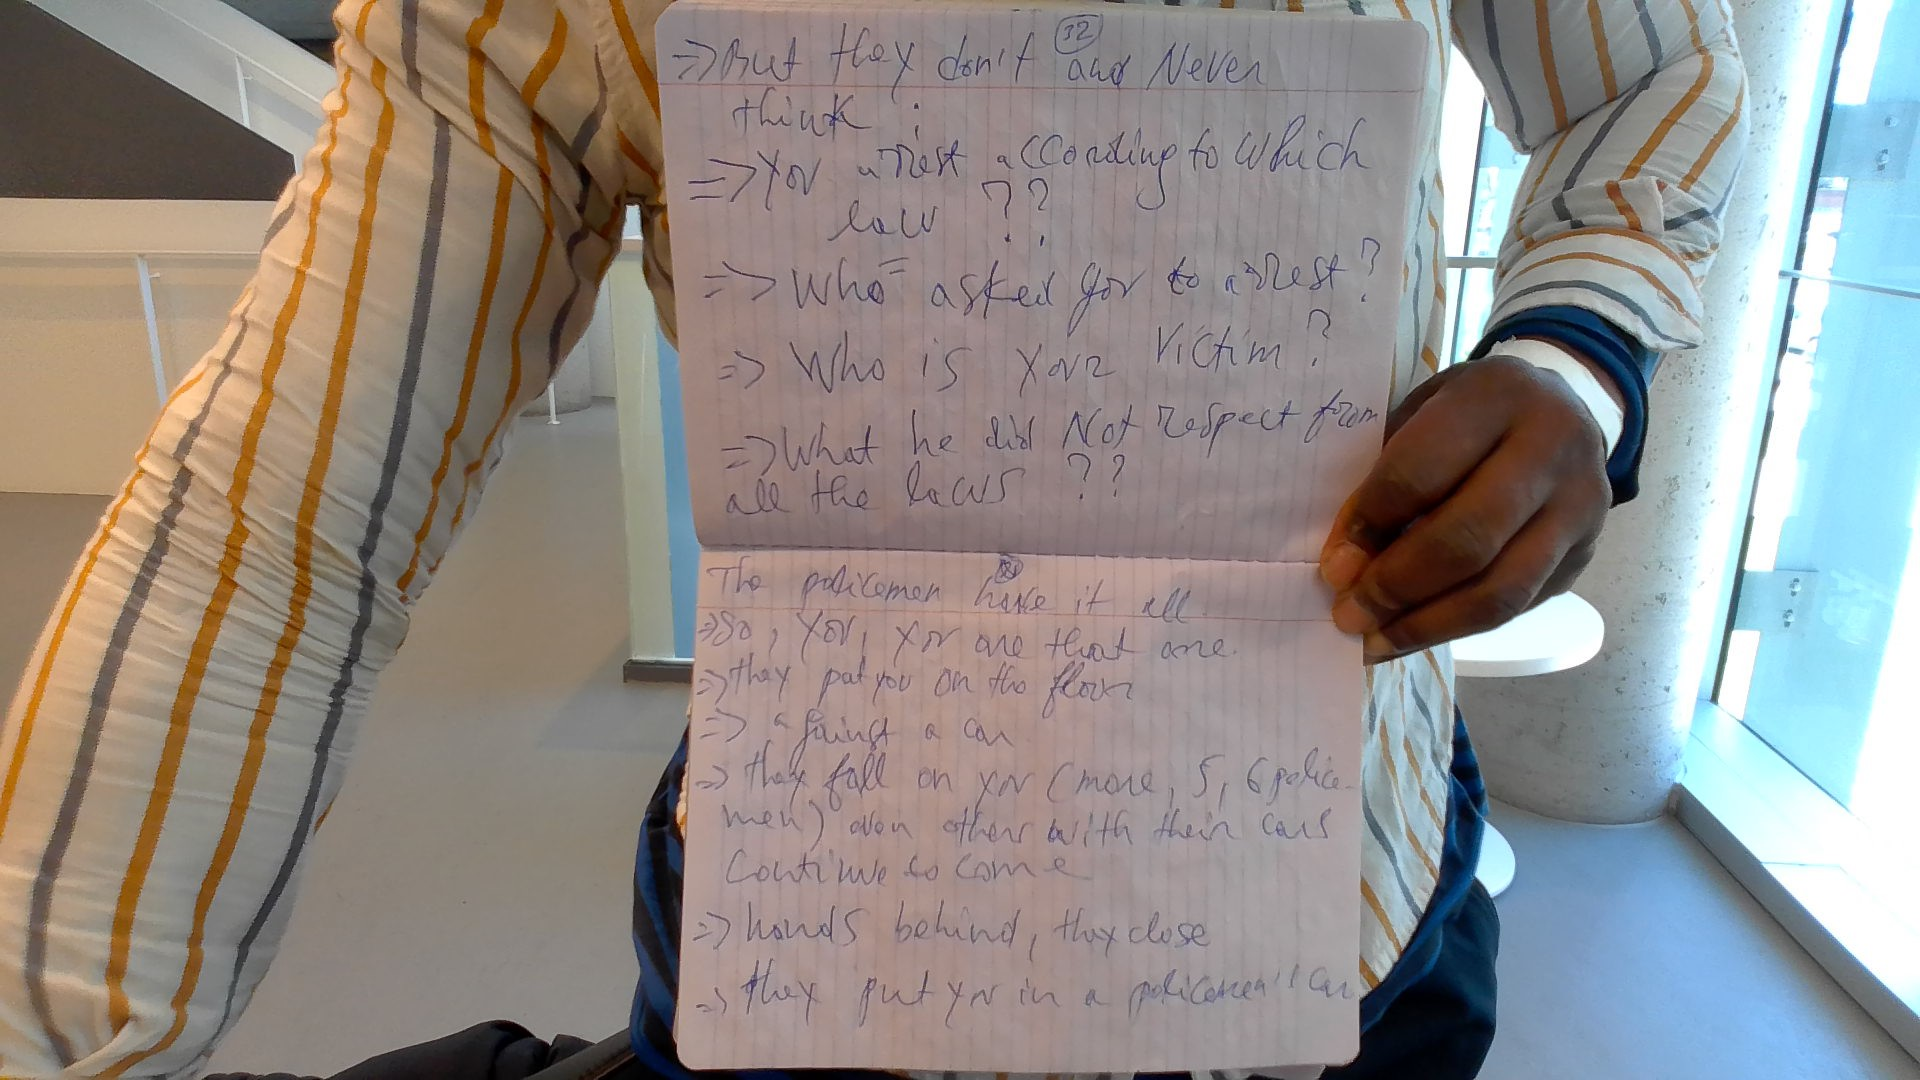 32
=> But they don't and Never
think :
=> You arrest according to which
law ??
=> Who asked you to arrest ?
=> Who is your victim ?
=> What he did Not respect from
all the laws ??
The policemen have it all
=> So, you, you are that one.
=> they put you on the floor
=> against a car
=> they fall on you (more, 5, 6 police-
men) even others with their cars
Continue to come
=> hands behind, they close
=> they put you in a policemen's car